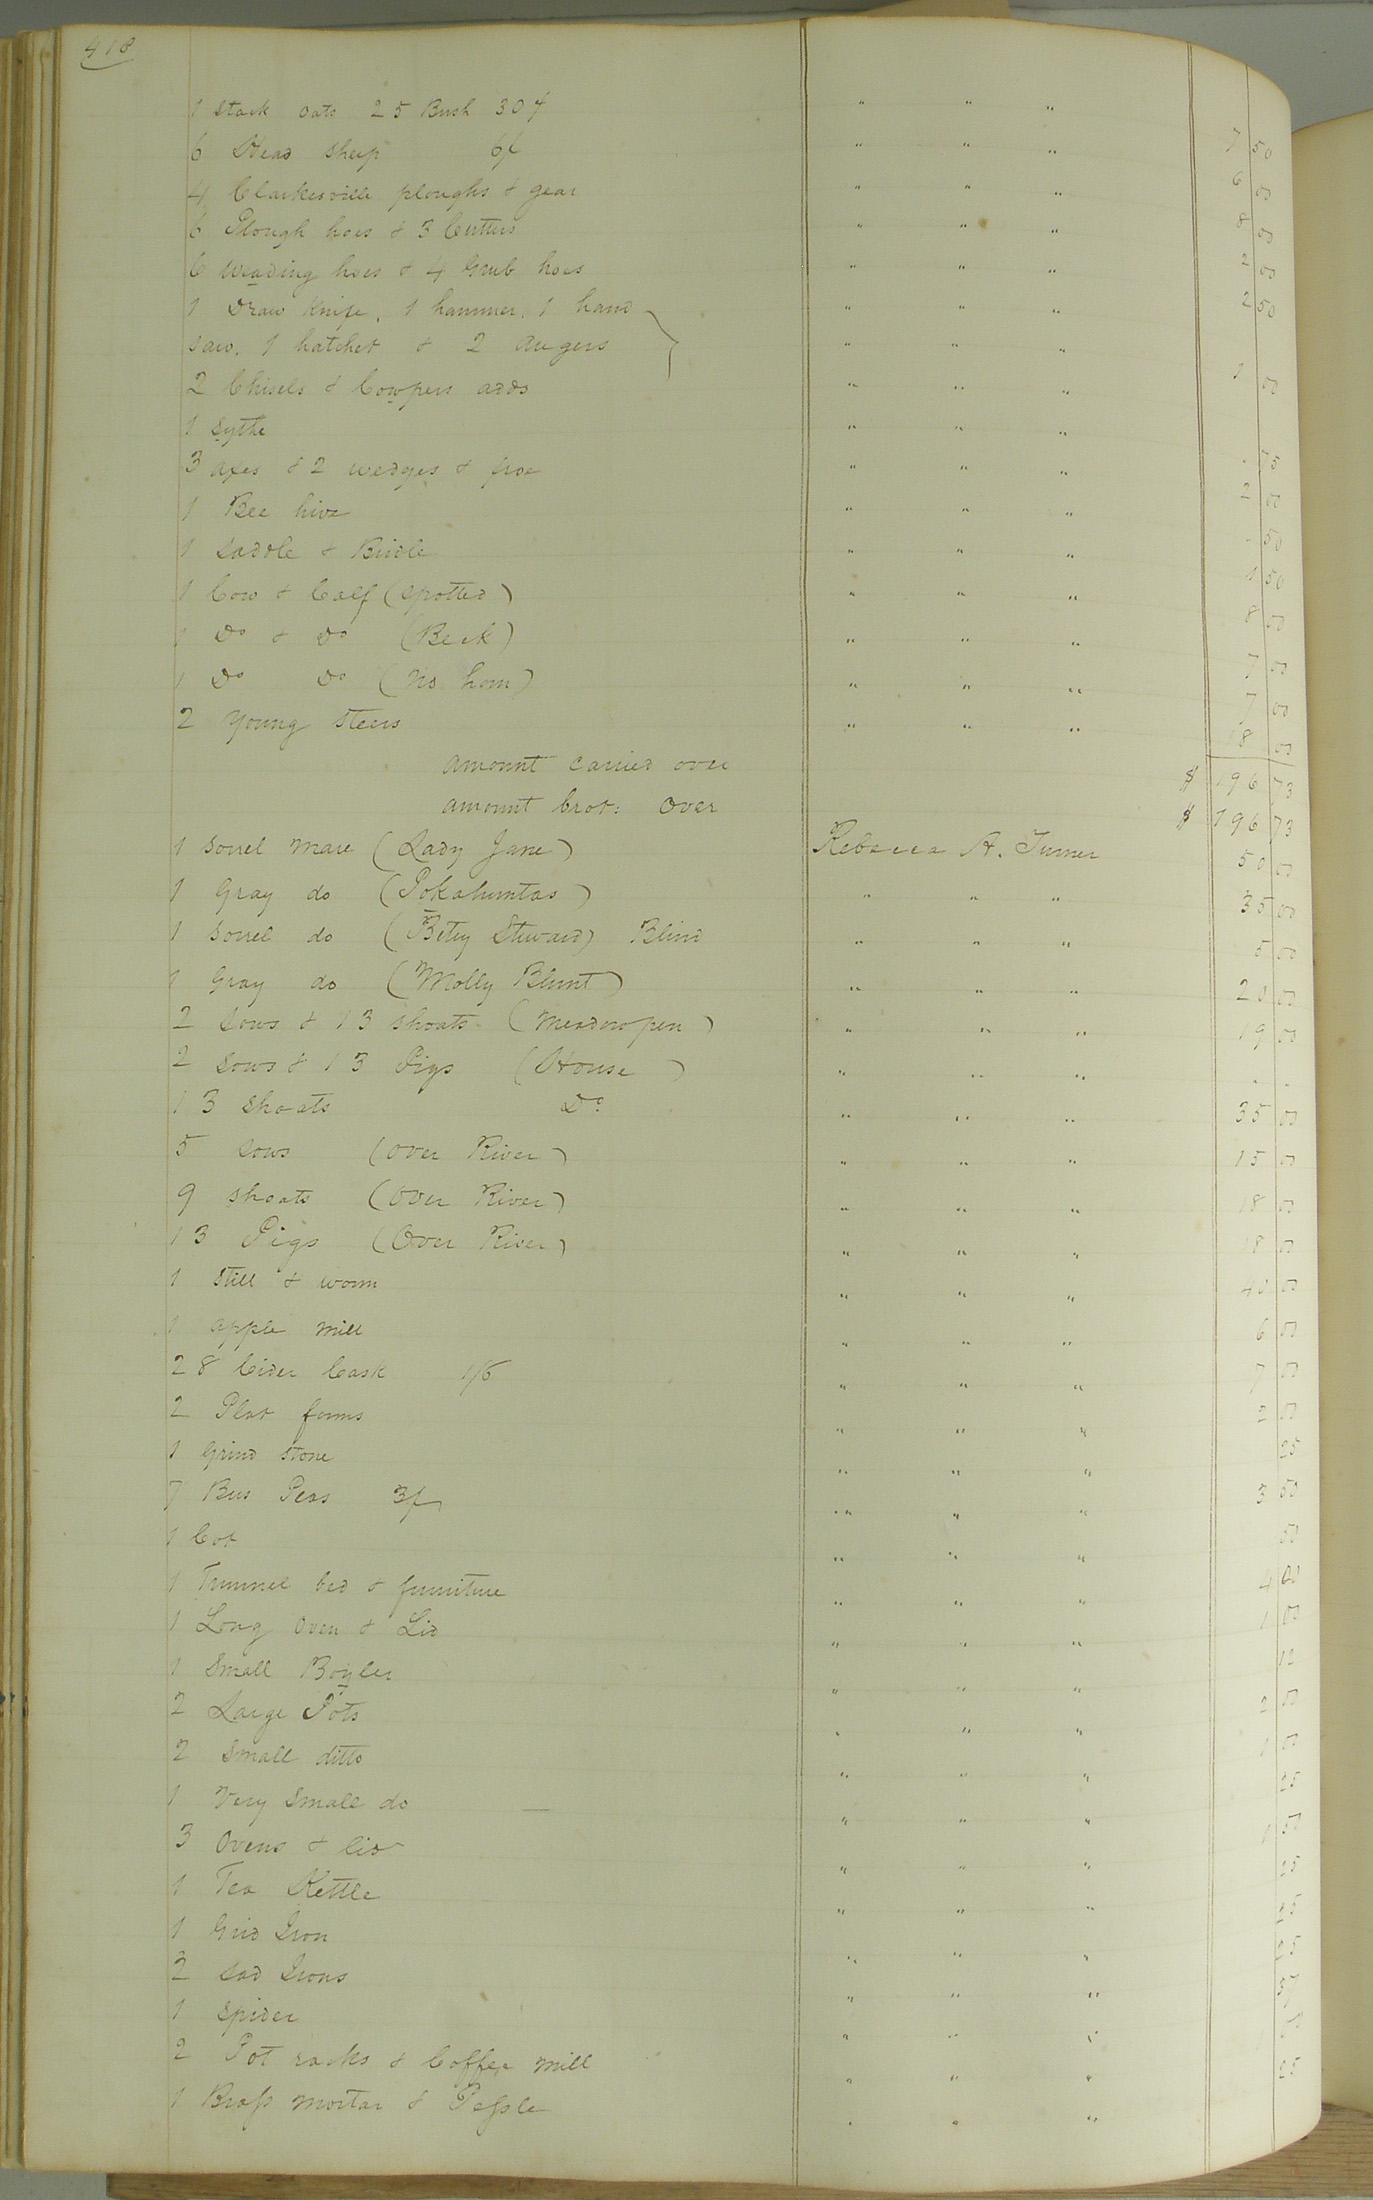 418
1 Stack Oats 25 Bush 30¢ " " " 7 50
6 Head Sheep 6/ " " " 6 00
4 Clarkesville ploughs & gear " " " 8 00
6 Plough hoes & 3 Cutters " " " 2 00
6 Weading hoes & 4 Grub hoes " " " 2 50
1 Draw Knife, 1 hammer, 1 hand " " "
saw, 1 hatchet & 2 Augers " " " 1 00
2 Chisels & Cowpers adds " " "
1 Sythe " " " . 75
3 axes & 2 wedges & froe " " " 2 00
1 Bee hive " " " . 50
1 Saddle & Bridle " " " 1 50
1 Cow & Calf (Spotted) " " " 8 00
1 Do & Do (Beck) " " " 7 00
1 Do Do (No horn) " " " 7 00
2 Young Steers " " " 18 00
Amount Carried over $ 196 73
Amount brot: Over $ 196 73
1 Sorrel Mare (Lady Jane) Rebecca A. Turner 50 00
1 Gray do (Pokahuntas) " " " 35 00
1 Sorrel do (Betsy Steward) Blind " " " 5 00
1 Gray do (Molly Blunt) " " " 20 00
2 Sows & 13 Shoats (Meadow pen) " " " 19 00
2 Sows & 13 Pigs (House) " " " . .
13 Shoats Do " " " 35 00
5 Sows (Over River) " " " 15 00
9 Shoats (Over River) " " " 18 00
13 Pigs (Over River) " " " 18 00
1 Still & worm " " " 40 00
1 Apple Mill " " " 6 00
28 Cider Cask 1/6 " " " 7 00
2 Plat forms " " " 2 00
1 Grind Stone " " " 25
7 Bus Peas 3/ " " " 3 50
1 Cot " " " 50
1 Trunnel bed & furniture " " " 4 00
1 Long Oven & Lid " " " 1 00
1 Small Boyler " " " 12
2 Large Pots " " " 2 00
2 Small ditto " " " 1 00
1 Very Small do " " " 25
3 Ovens & lid " " " 1 50
1 Tea Kettle " " " 25
1 Grid Iron " " " 25
2 Sad Irons " " " 25
1 Spider " " "
2 Pot racks & Coffee Mill " " "
1 Brass Mortar & Pessle " " " 25